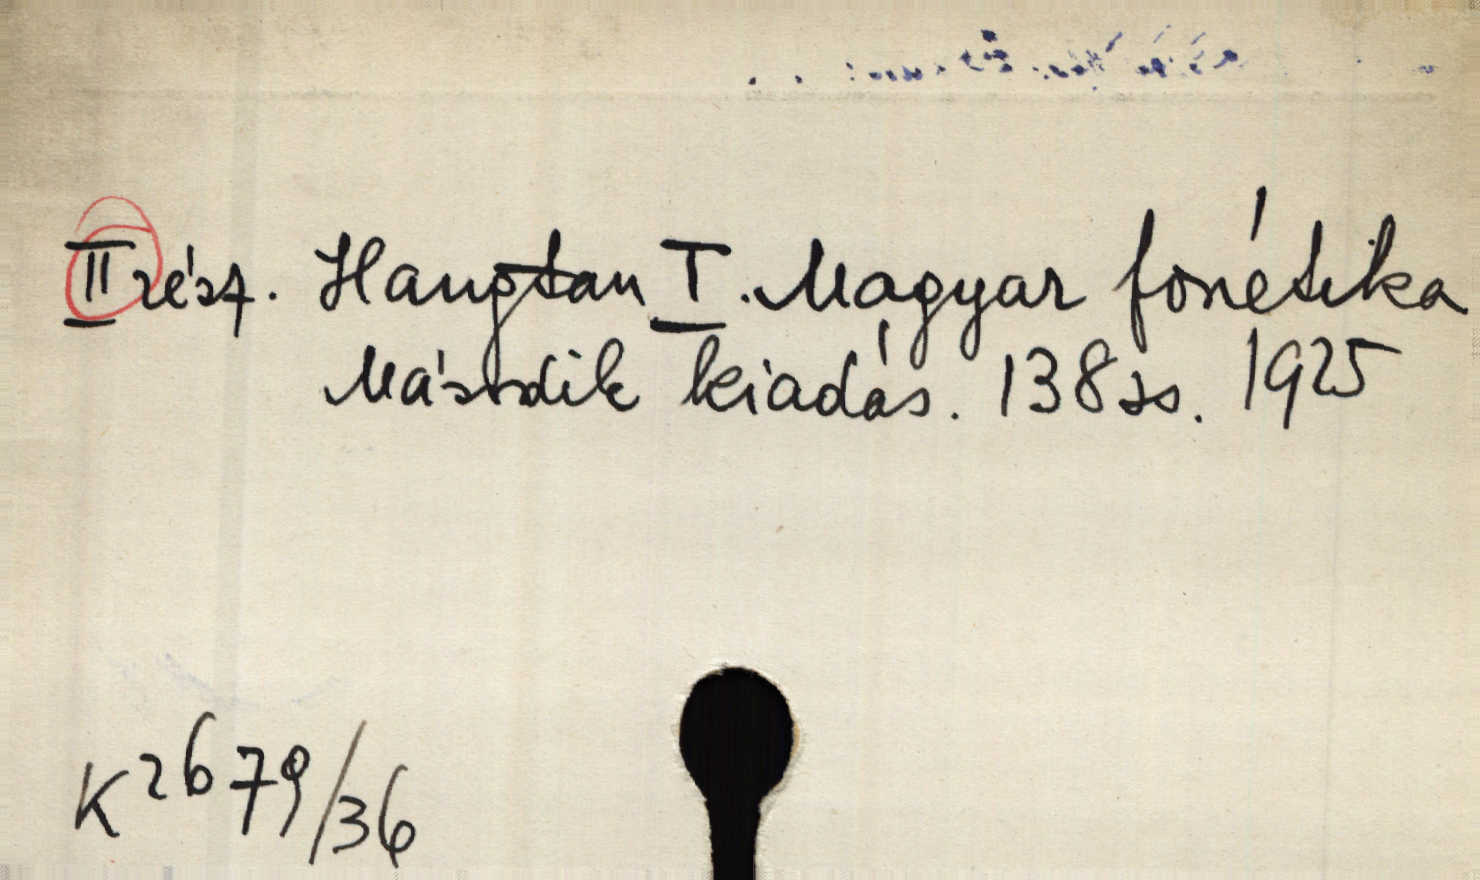 II rész. Hangtan I. Magyar fonétika
Második kiadás. 138 ss. 1925
K 2679/36